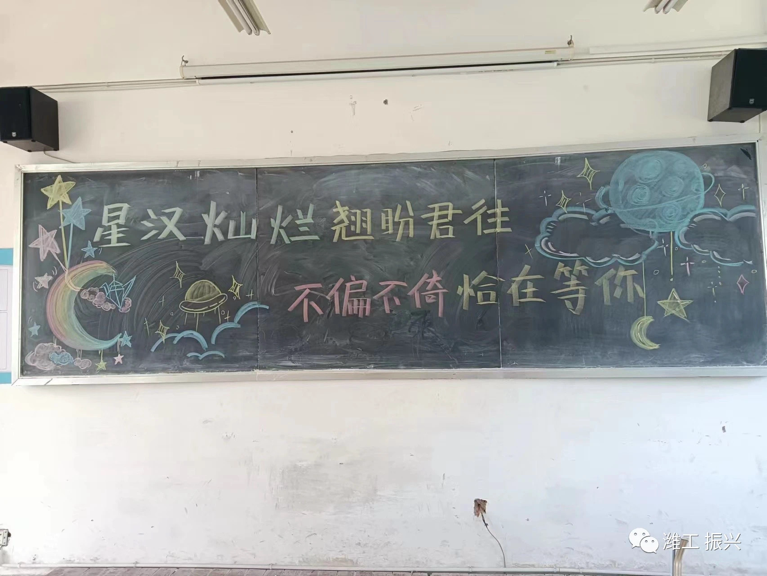 星汉灿烂翘盼君往
不偏不倚恰在等你
潍工 振兴